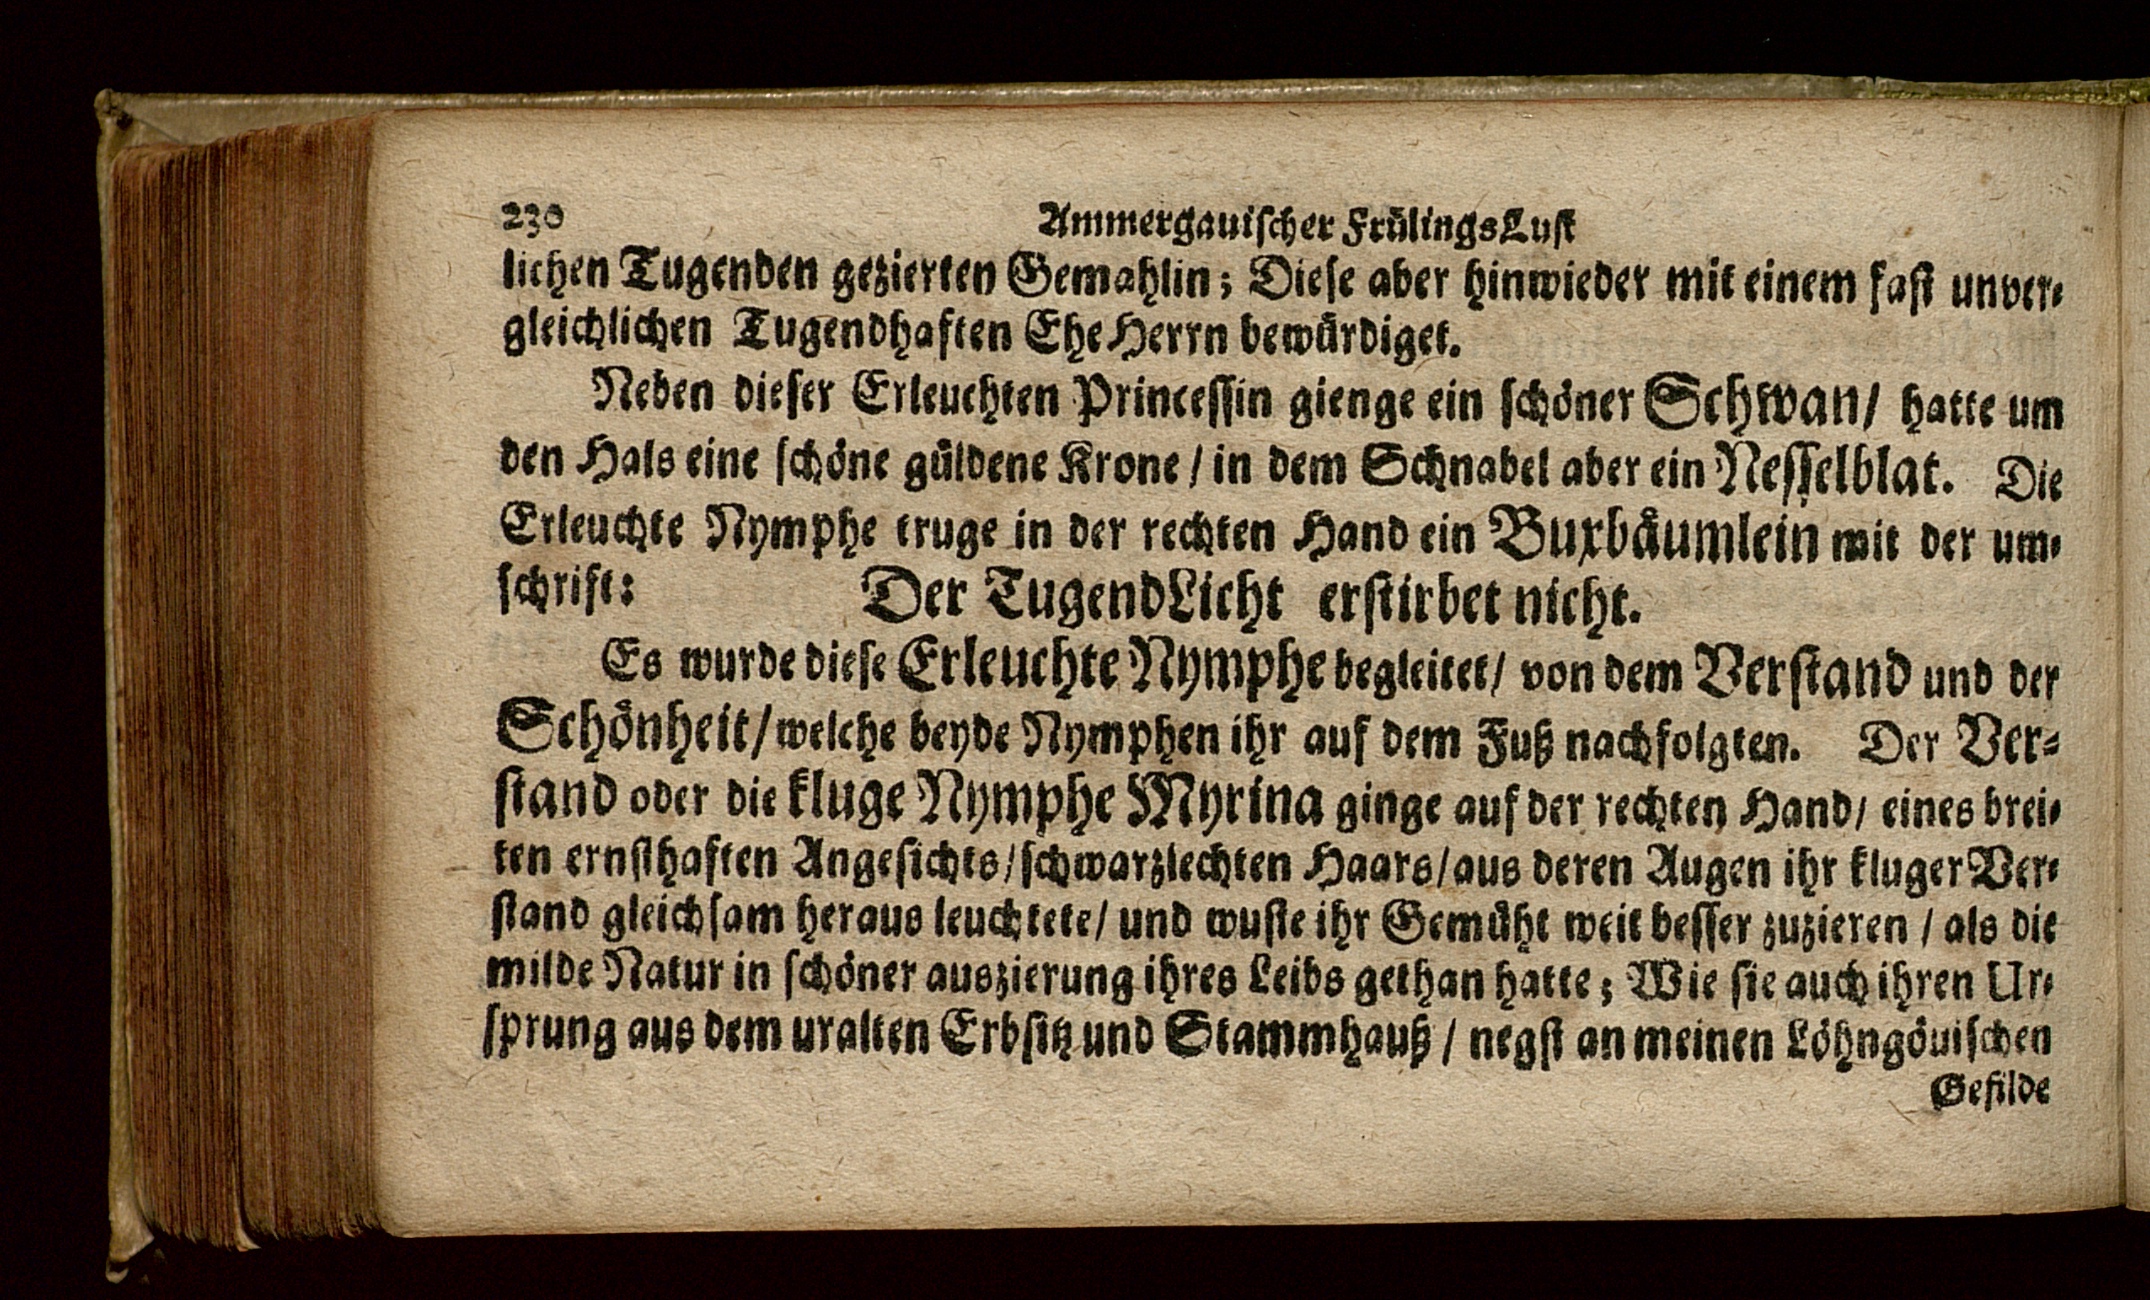 230 Ammergauiſcher FrülingsLuſt
lichen Tugenden gezierten Gemahlin; Dieſe aber hinwieder mit einem faſt unver-
gleichlichen Tugendhaften EheHerrn bewürdiget.
Neben dieſer Erleuchten Princeſſin gienge ein ſchöner Schwan/ hatte um
den Hals eine ſchöne güldene Krone / in dem Schnabel aber ein Neſſelblat. Die
Erleuchte Nymphe truge in der rechten Hand ein Buxbäumlein mit der um-
ſchrift: Der TugendLicht erſtirbet nicht.
Es wurde dieſe Erleuchte Nymphe begleitet/ von dem Verſtand und der
Schönheit/welche beyde Nymphen ihr auf dem Fuß nachfolgten. Der Ver-
ſtand oder die kluge Nymphe Myrina ginge auf der rechten Hand/ eines brei-
ten ernſthaften Angeſichts/ſchwarzlechten Haars/aus deren Augen ihr kluger Ver-
ſtand gleichſam heraus leuchtete/ und wuſte ihr Gemüht weit beſſer zuzieren / als die
milde Natur in ſchöner auszierung ihres Leibs gethan hatte; Wie ſie auch ihren Ur-
ſprung aus dem uralten Erbſitz und Stammhauß / negſt an meinen Löhngöuiſchen
Gefilde